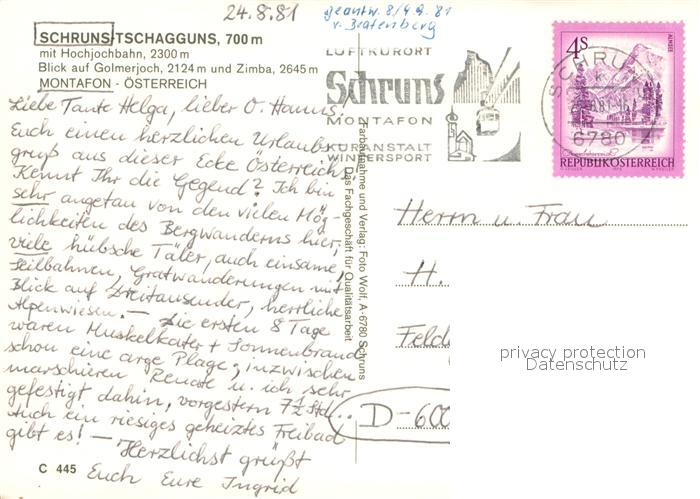 24.8.81
geantw. 8/9.9.81
v. Bratenberg
SCHRUNS-TSCHAGGUNS, 700 m
mit Hochjochbahn, 2300 m
Blick auf Golmerjoch, 2124 m und Zimba, 2645 m
MONTAFON - ÖSTERREICH
Liebe Tante Helga, lieber O. Hanns,
Euch einen herzlichen Urlaubs-
gruß aus dieser Ecke Österreichs.
Kennt Ihr die Gegend? Ich bin
sehr angetan von den vielen Mög-
lichkeiten des Bergwanderns hier;
viele hübsche Täler, auch einsame,
Seilbahnen, Gratwanderungen mit
Blick auf Dreitausender, herrliche
Alpenwiesen. – Die ersten 8 Tage
waren Muskelkater + Sonnenbrand
schon eine arge Plage; inzwischen
marschieren Renate u. ich sehr
gefestigt dahin, vorgestern 7½ Std..
Auch ein riesiges geheiztes Freibad
gibt es! – Herzlichst grüßt
Euch Eure Ingrid
C 445
Farbaufnahme und Verlag: Foto Wolf, A-6780 Schruns
Das Fachgeschäft für Qualitätsarbeit
LUFTKURORT
Schruns
MONTAFON
KURANSTALT
WINTERSPORT
4S
ALMSEE
REPUBLIK ÖSTERREICH
SCHRUNS
6780
Herrn u. Frau
H.
Feld
D-600
privacy protection
Datenschutz